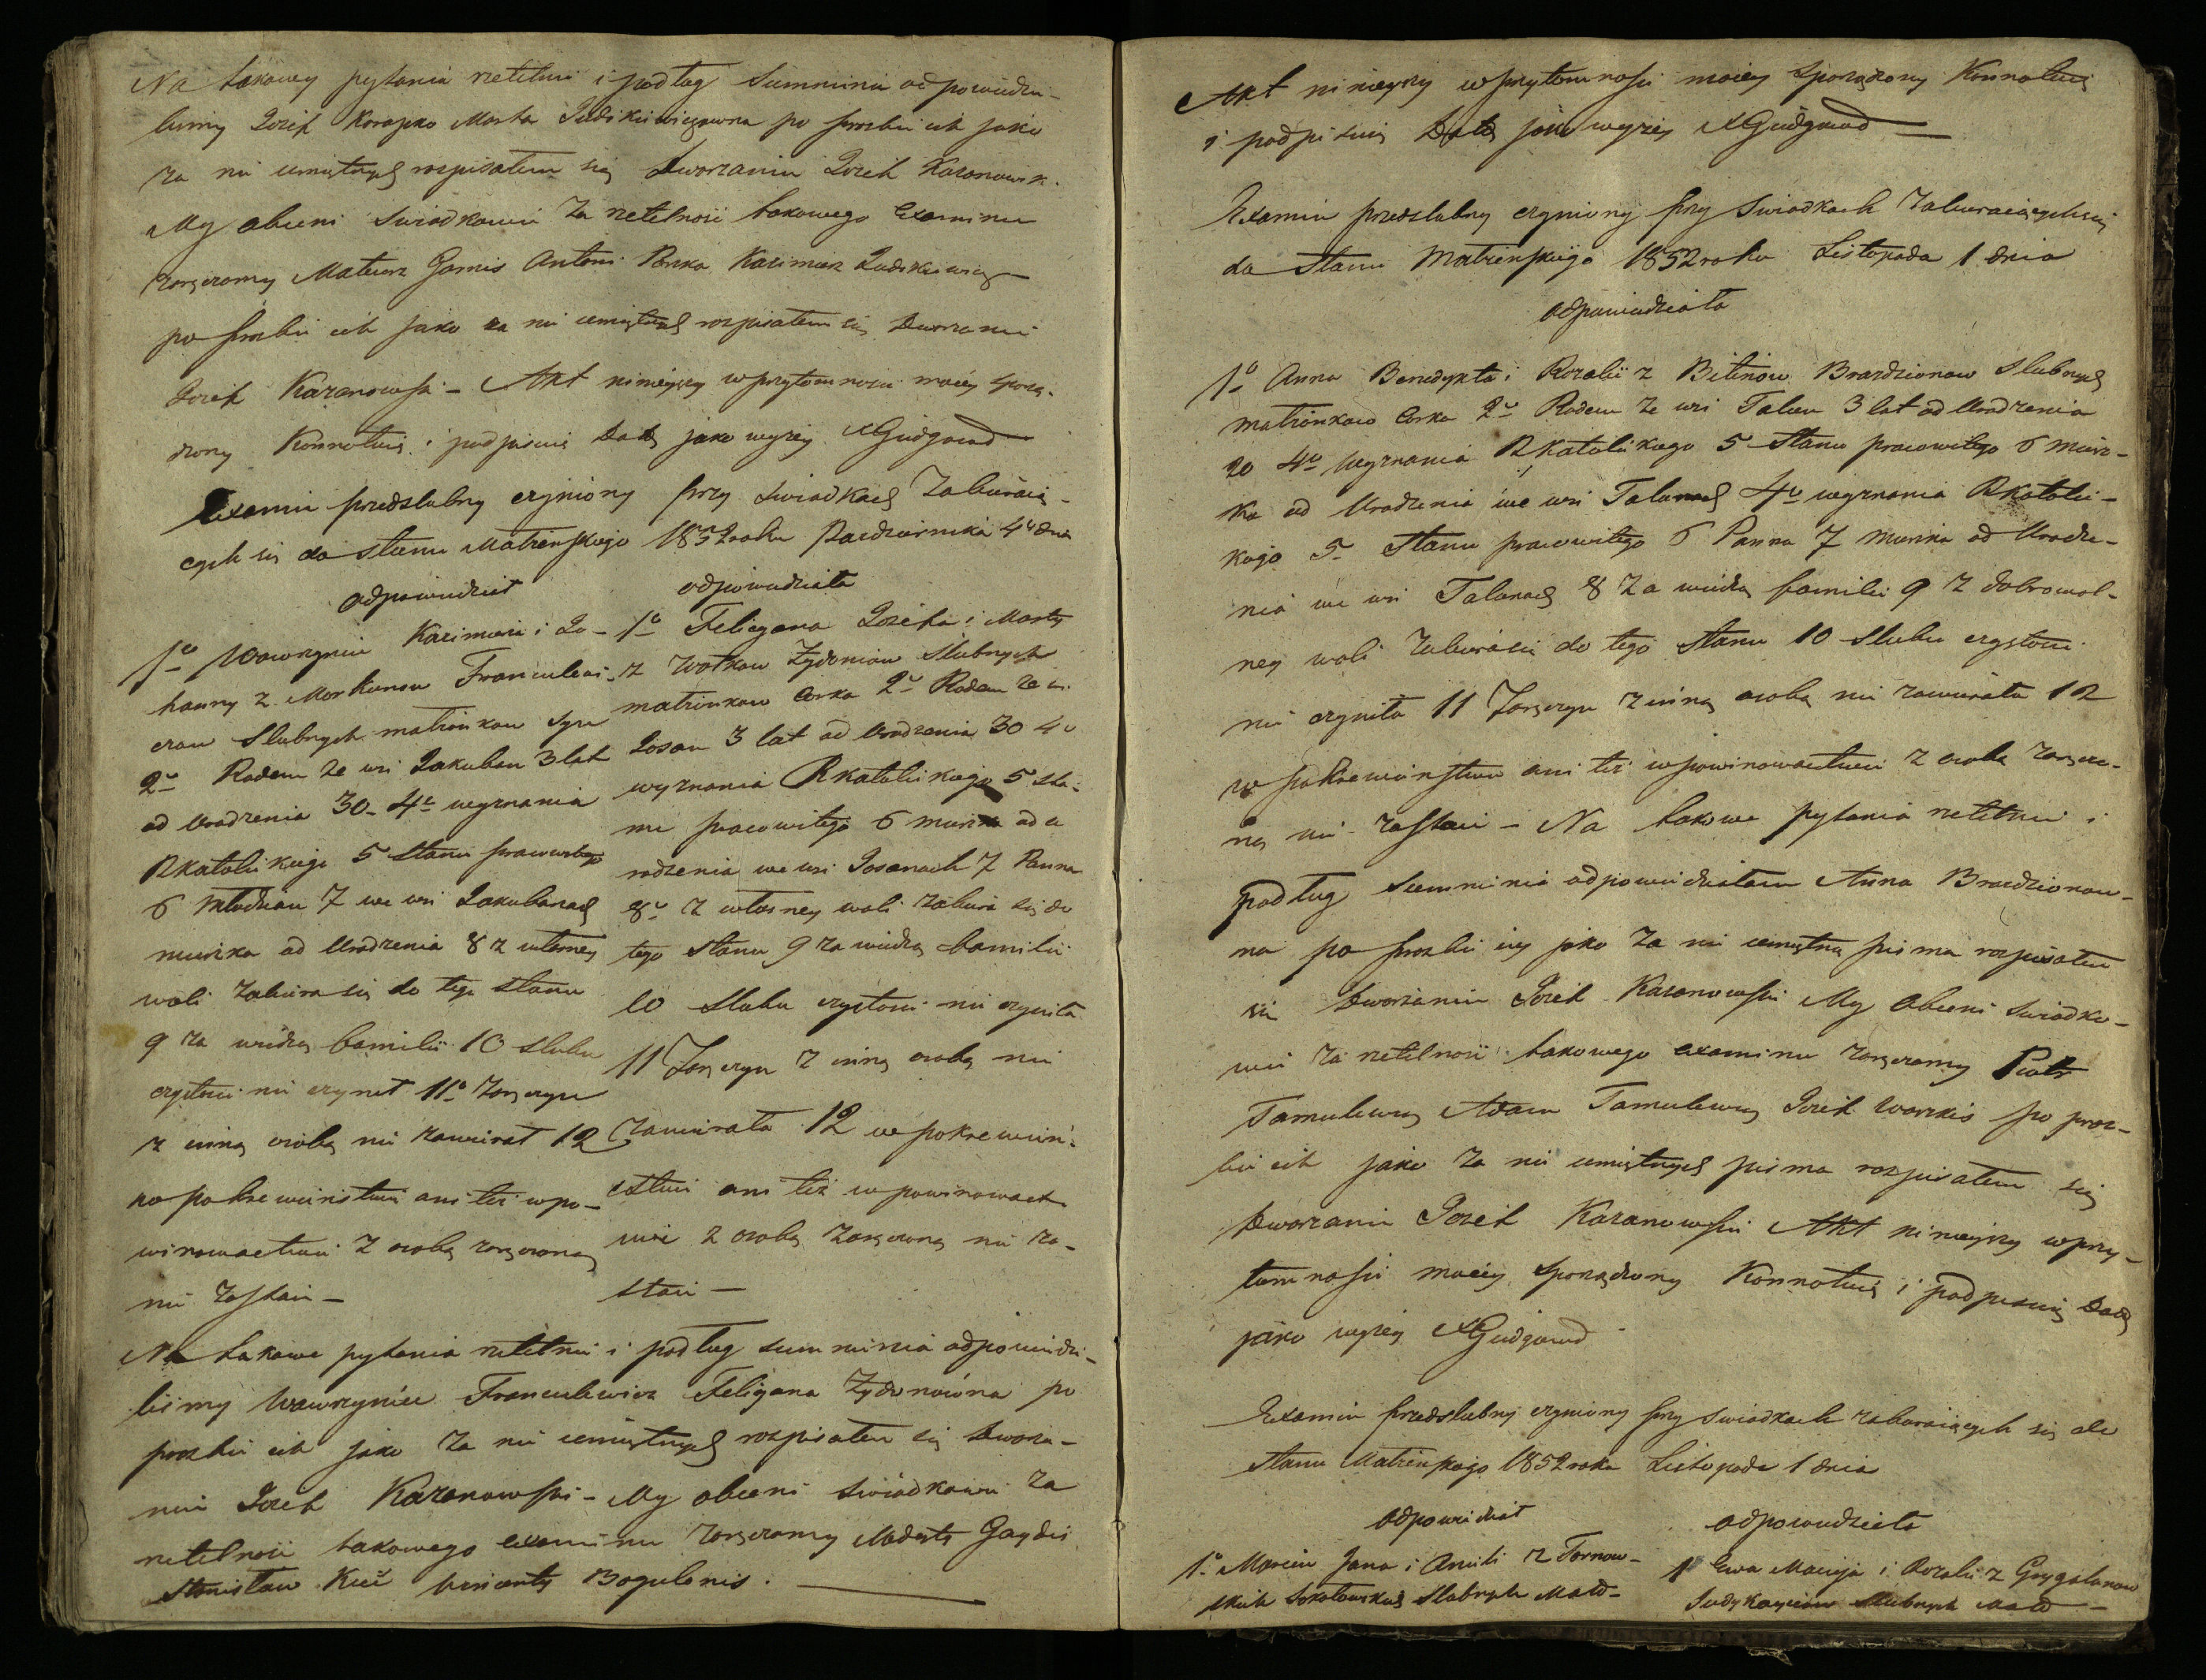 Na takowey pytania rzetelnie i podług Summinia odpowiedzie-
lismy Jozef Korapko Marta Judikiewiczowna po prozbie ich jako
za nie umiętnych rozpisałem się Dworzanin Jozef Kazanowsk.
My obecni Swiadkowie za rzetelnosc takowego Examinu
zaręczamy Mateusz Gamis Antoni Kazimierz Judikiewicz
po prozbie ich jako za nie umiętnych rozpisałem się Dworzanin
Jozef Kazanowski – Akt ninieyszy w przytomnosci moiey sporzą-
dzony Konnotuię i podpisuię Datą jako wyżey X Giedgowd
Examin przedslubny czyniony przy Swiadkach Zabieraią-
cych się do stanu Matzenskiego 1852 roku Pazdziernika 4º dnia
odpowiedział
1º Wawrzyniec Kazimierza i Jo-
hanny z Morkunow Franculewi-
czow Slubnych matzonkow Syn
2º Rodem ze wsi Jakuban 3 lat
od Urodzenia 30 – 4º wyznania
RKatolickiego 5 Stanu pracowitego
6 Młodzian 7 we wsi Jakubanach
mieszka od Urodzenia 8 z własney
woli zabiera się do tego stanu
9 za wiedzą familii 10 slubu
czystosci nie czynił 11º Zaręczyn
z inną osobą nie zawierał 12
w pokrewienstwie ani też w po-
winowactwie z osobą zaręczoną
nie zostaie –
odpowiedziała
1º Felicyana Jozefa i Marty
z Wołkow Zydoniow Slubnych
matzonkow Corka 2º Rodem ze w.
Josan 3 lat od Urodzenia 30 4º
wyznania RKatolickiego 5 Sta-
nu pracowitego 6 mieszka od u
rodzenia we wsi Josanach 7 Panna
8º z własney woli zabiera się do
tego stanu 9 za wiedzą familii
10 Slubu czystosci nie czyniła
11 Zaręczyn z inną osobą nie
zawierała 12 w pokrewien-
stwie ani też w powinowact-
wie z osobą zaręczoną nie zo-
staie –
Na takowe pytania rzetelnie i podług summinia odpowiedzie-
lismy Wawrzyniec Franculewicz Felicyana Zydonowna po
prozbie ich jako za nie umiętnych rozpisałem się Dworza-
nin Jozef Kazanowski – My obecni Swiadkowie za
rzetelnosc takowego examinu zaręczamy Modesty Gaydis
Stanisław Kuć Wincenty Bogulanis.
Akt ninieyszy w przytomnosci moiey Sporządzony Konnotuię
i podpisuię Datą jako wyżey X Giedgowd
Examin przedslubny czyniony przy Swiadkach Zabieraiących się
do Stanu Matzenskiego 1852 roku Listopada 1 dnia
odpowiedziała
1º Anna Benedykta i Rozalii z Bitinow Brazdzionow Slubnych
matzonkow Corka 2º Rodem ze wsi Talun 3 lat od Urodzenia
20 4º Wyznania RKatolickiego 5 Stanu pracowitego 6 miesz-
ka od Urodzenia we wsi Talunach 4º wyznania RKatolic-
kiego 5 Stanu pracowitego 6 Panna 7 mieszka od Urodze-
nia we wsi Talunach 8 Za wiedzą familii 9 Z dobrowol-
ney woli Zabiera się do tego Stanu 10 Slubu czystosci
nie czyniła 11 Zaręczyn z inną osobą nie zawierała 12
w pokrewienstwie ani też w powinowactwie z osobą zaręczo-
ną nie zostaie – Na takowe pytania rzetelnie i
podług Summinia odpowiedziałam Anna Brazdzionow-
na po prozbie iey jako za nie umiętną pisma rozpisałem
się Dworzanin Jozef Kazanowski My Obecni Swiadko-
wie za rzetelnosc takowego examinu zaręczamy Piotr
Tamulewicz Adam Tamulewicz Jozef Warzkis po proz-
bie ich jako za nie umiętnych pisma rozpisałem się
Dworzanin Jozef Kazanowski Akt ninieyszy w przy-
tomnosci moiey Sporządzony Konnotuię i podpisuię Datą
jako wyżey X Giedgowd
Examin przedslubny czyniony przy Swiadkach zabieraiących się do
Stanu Matzenskiego 1852 roku Listopada 1 dnia
odpowiedział
1º Marcin Jana i Anieli z Tarnow-
skich Sokołowskich Slubnych Matż-
odpowiedziała
1 Ewa Macieja i Rozalii z Grygalunow
Judykayciow Slubnych Matż-